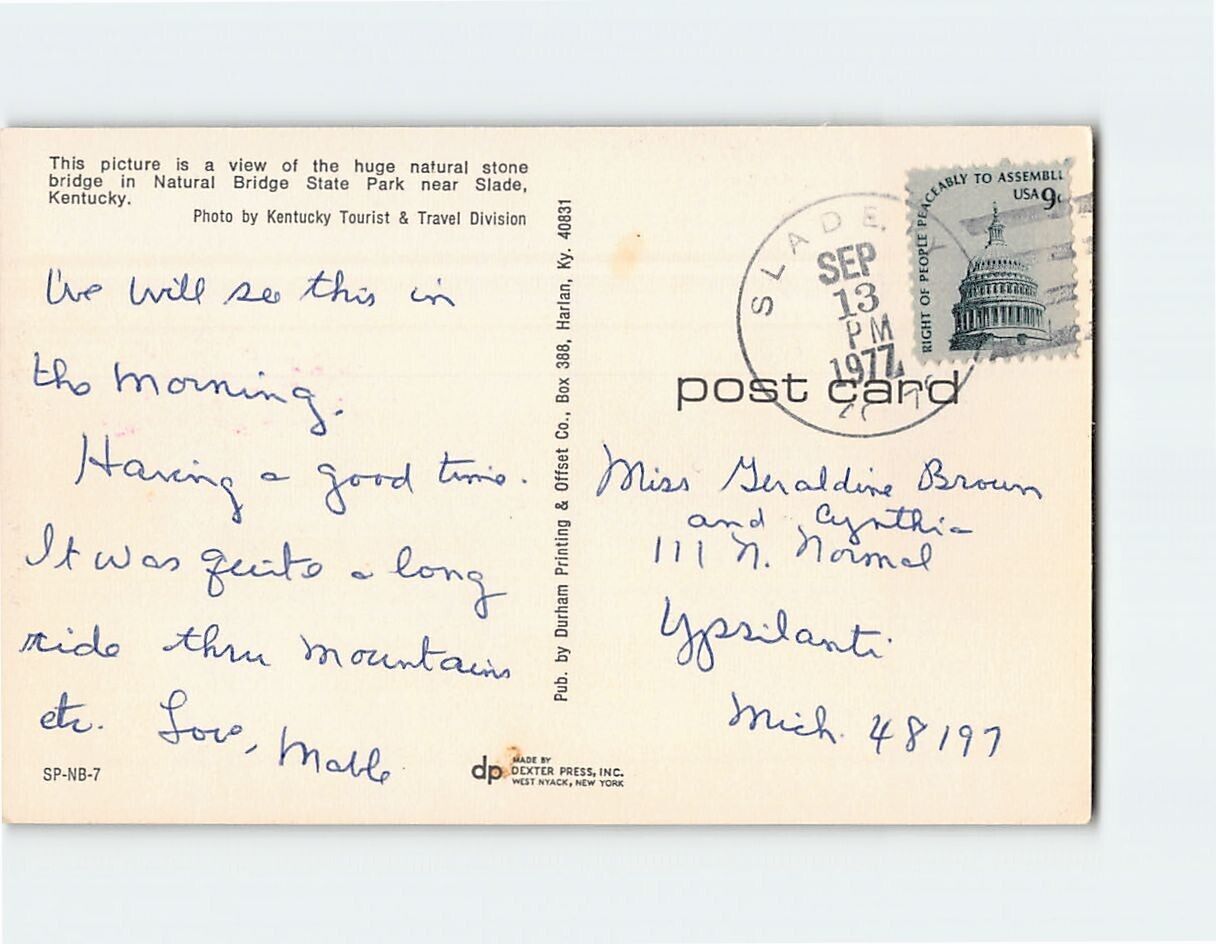 This picture is a view of the huge natural stone
bridge in Natural Bridge State Park near Slade,
Kentucky.
Photo by Kentucky Tourist & Travel Division
We will see this in
the morning.
Having a good time.
It was quite a long
ride thru mountains
etc. Love, Mable
SP-NB-7
Pub. by Durham Printing & Offset Co., Box 388, Harlan, Ky. 40831
dp MADE BY
DEXTER PRESS, INC.
WEST NYACK, NEW YORK
SLADE,
SEP
13
PM
1977
RIGHT OF PEOPLE PEACEABLY TO ASSEMBLE
USA 9c
post card
Miss Geraldine Brown
and Cynthia
111 N. Normal
Ypsilanti
Mich. 48197